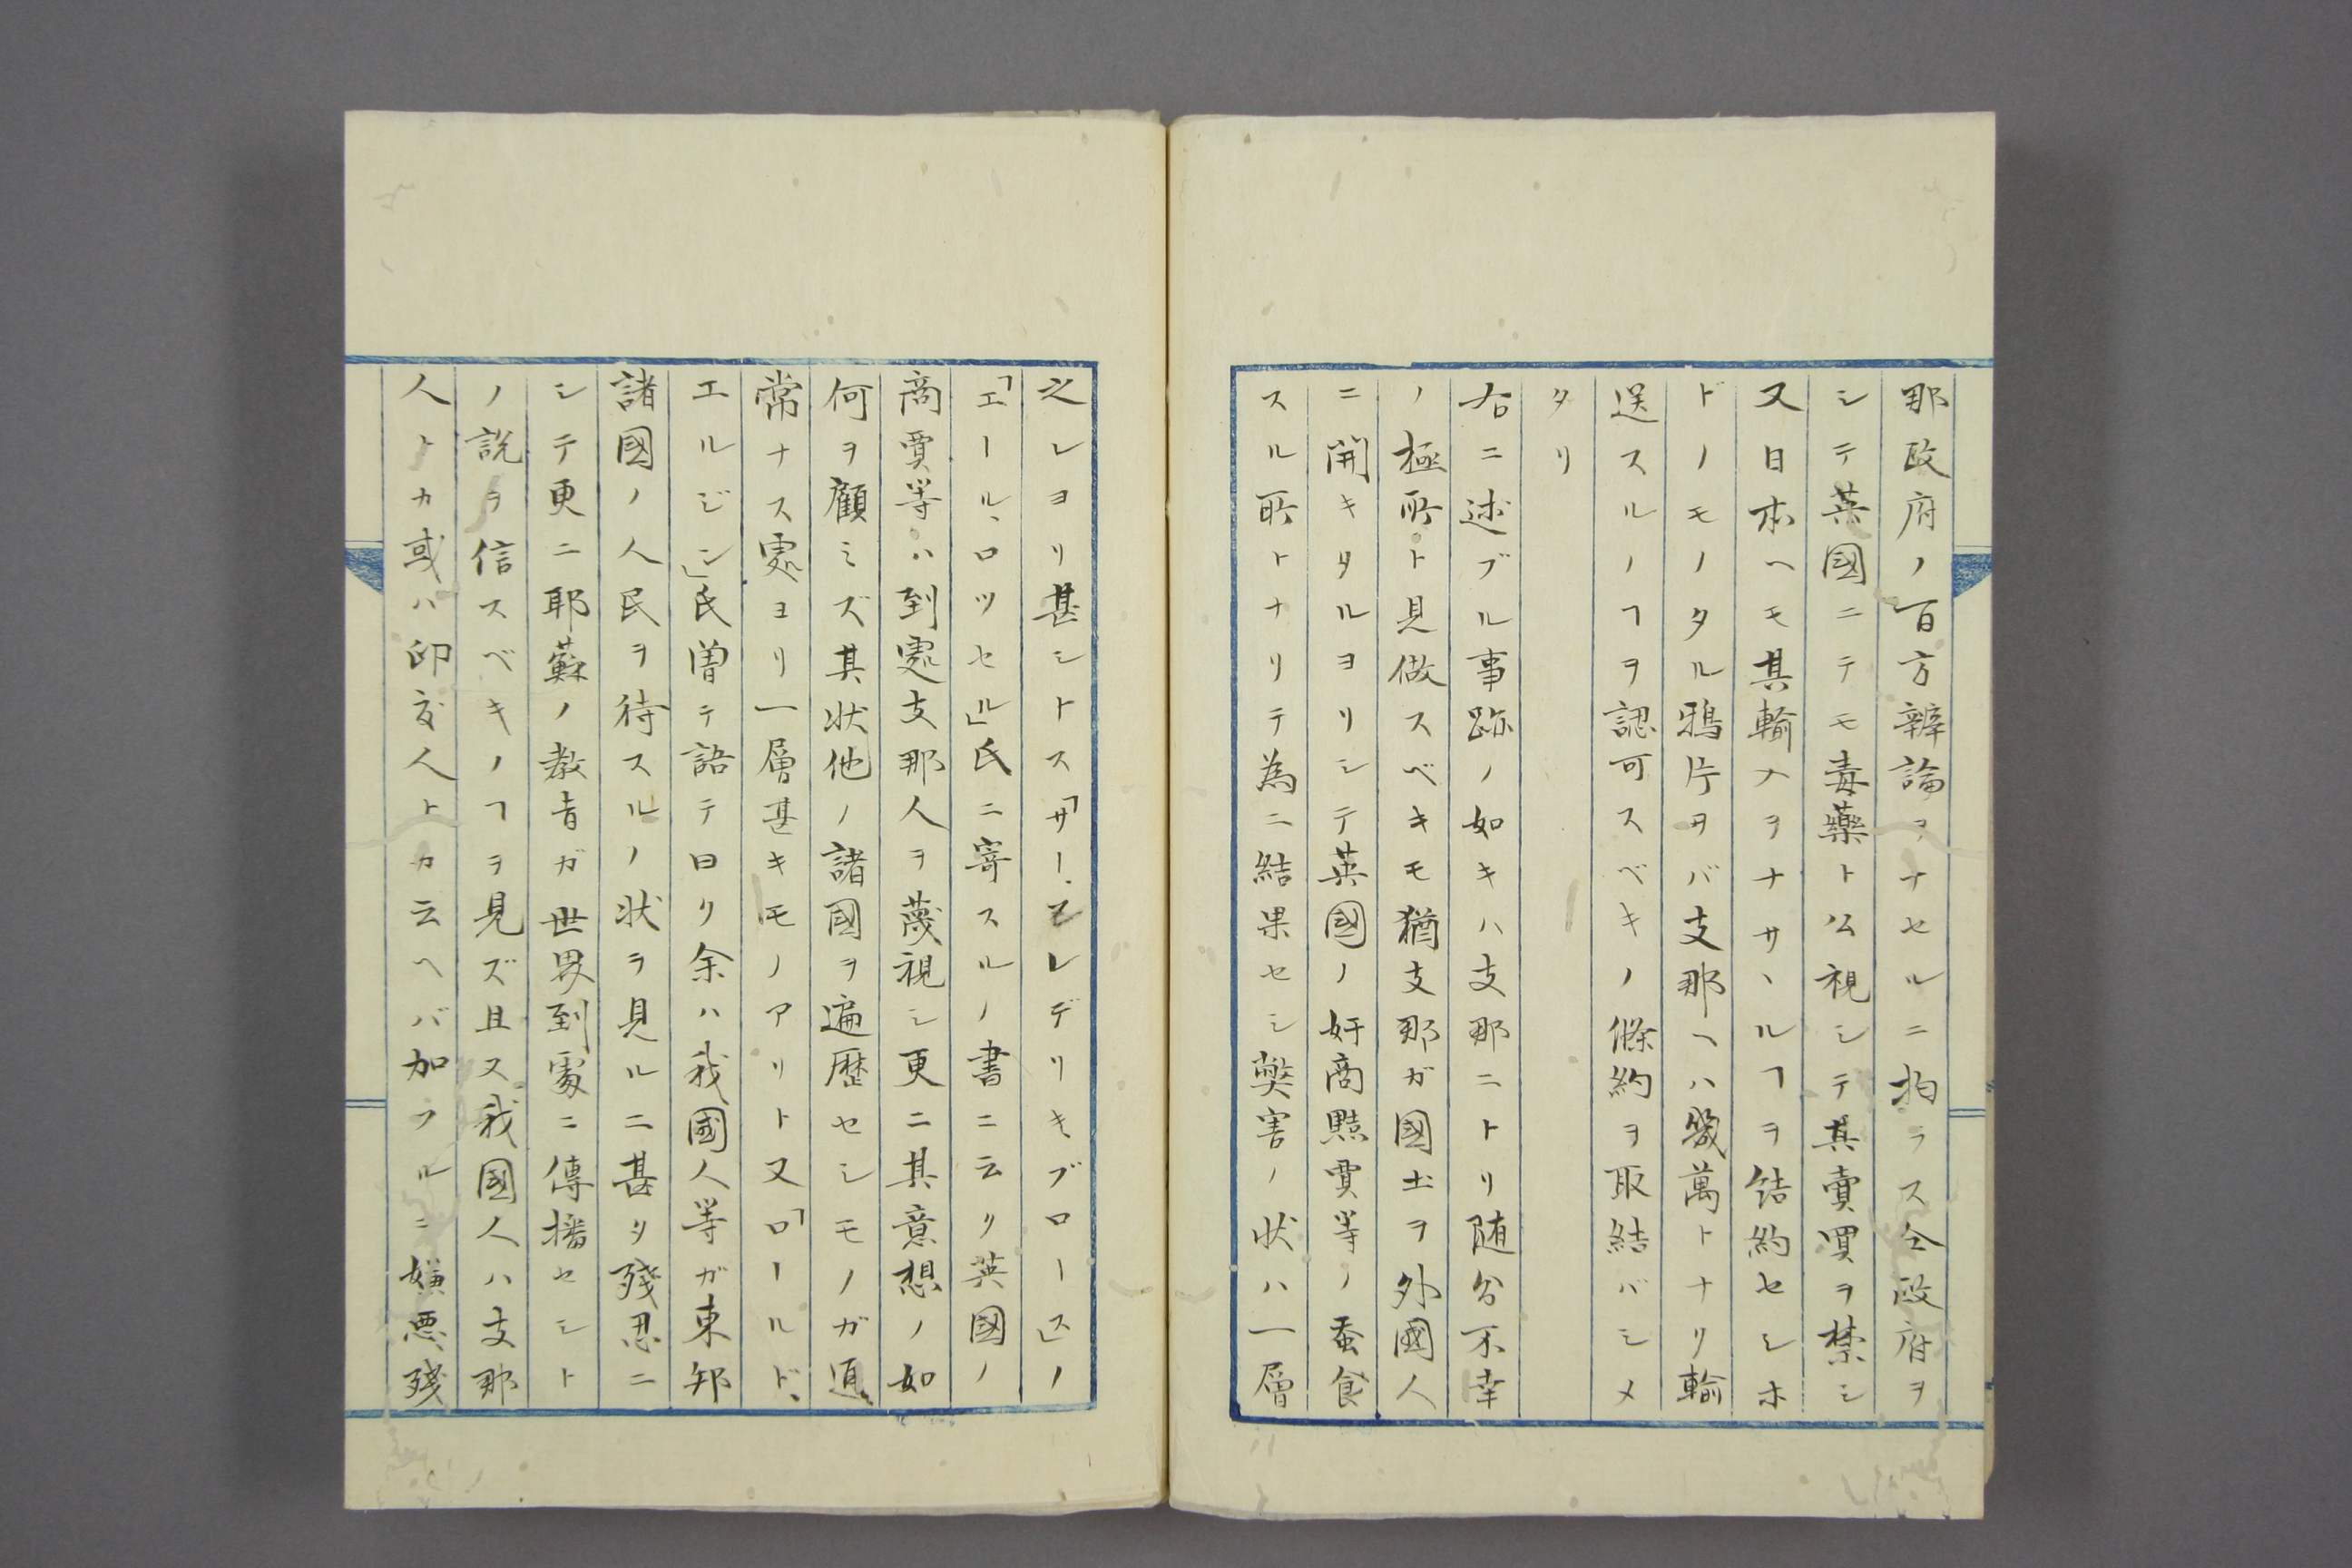 那政府ノ百方辨論ヲナセルニ拘ラス仝政府ヲ
シテ英國ニテモ毒藥ト公視シテ其賣買ヲ禁シ
又日本ヘモ其輸入ヲナサヽルヿヲ結約セシホ
ドノモノタル鴉片ヲバ支那ヘハ幾萬トナリ輸
送スルノヿヲ認可スベキノ條約ヲ取結バシメ
タリ
右ニ述ブル事跡ノ如キハ支那ニトリ随分不幸
ノ極所ト見做スベキモ猶支那ガ國土ヲ外國人
ニ開キタルヨリシテ英國ノ奸商黠賈等ノ蚕食
スル所トナリテ為ニ結果セシ弊害ノ状ハ一層
之レヨリ甚シトス「サー、フレデリキブロース」ノ
「エール、ロツセル」氏ニ寄スルノ書ニ云リ英國ノ
商賈等ハ到處支那人ヲ蔑視シ更ニ其意想ノ如
何ヲ顧ミズ其状他ノ諸國ヲ遍歴セシモノガ通
常ナス處ヨリ一層甚キモノアリト又「ロールド、
エルジン」氏曽テ語テ曰リ余ハ我國人等ガ東邦
諸國ノ人民ヲ待スルノ状ヲ見ルニ甚タ殘忍ニ
シテ更ニ耶蘇ノ教旨ガ世界到處ニ傳播セシト
ノ説ヲ信スベキノヿヲ見ズ且又我國人ハ支那
人トカ或ハ印度人トカ云ヘバ加フルニ嫌悪殘